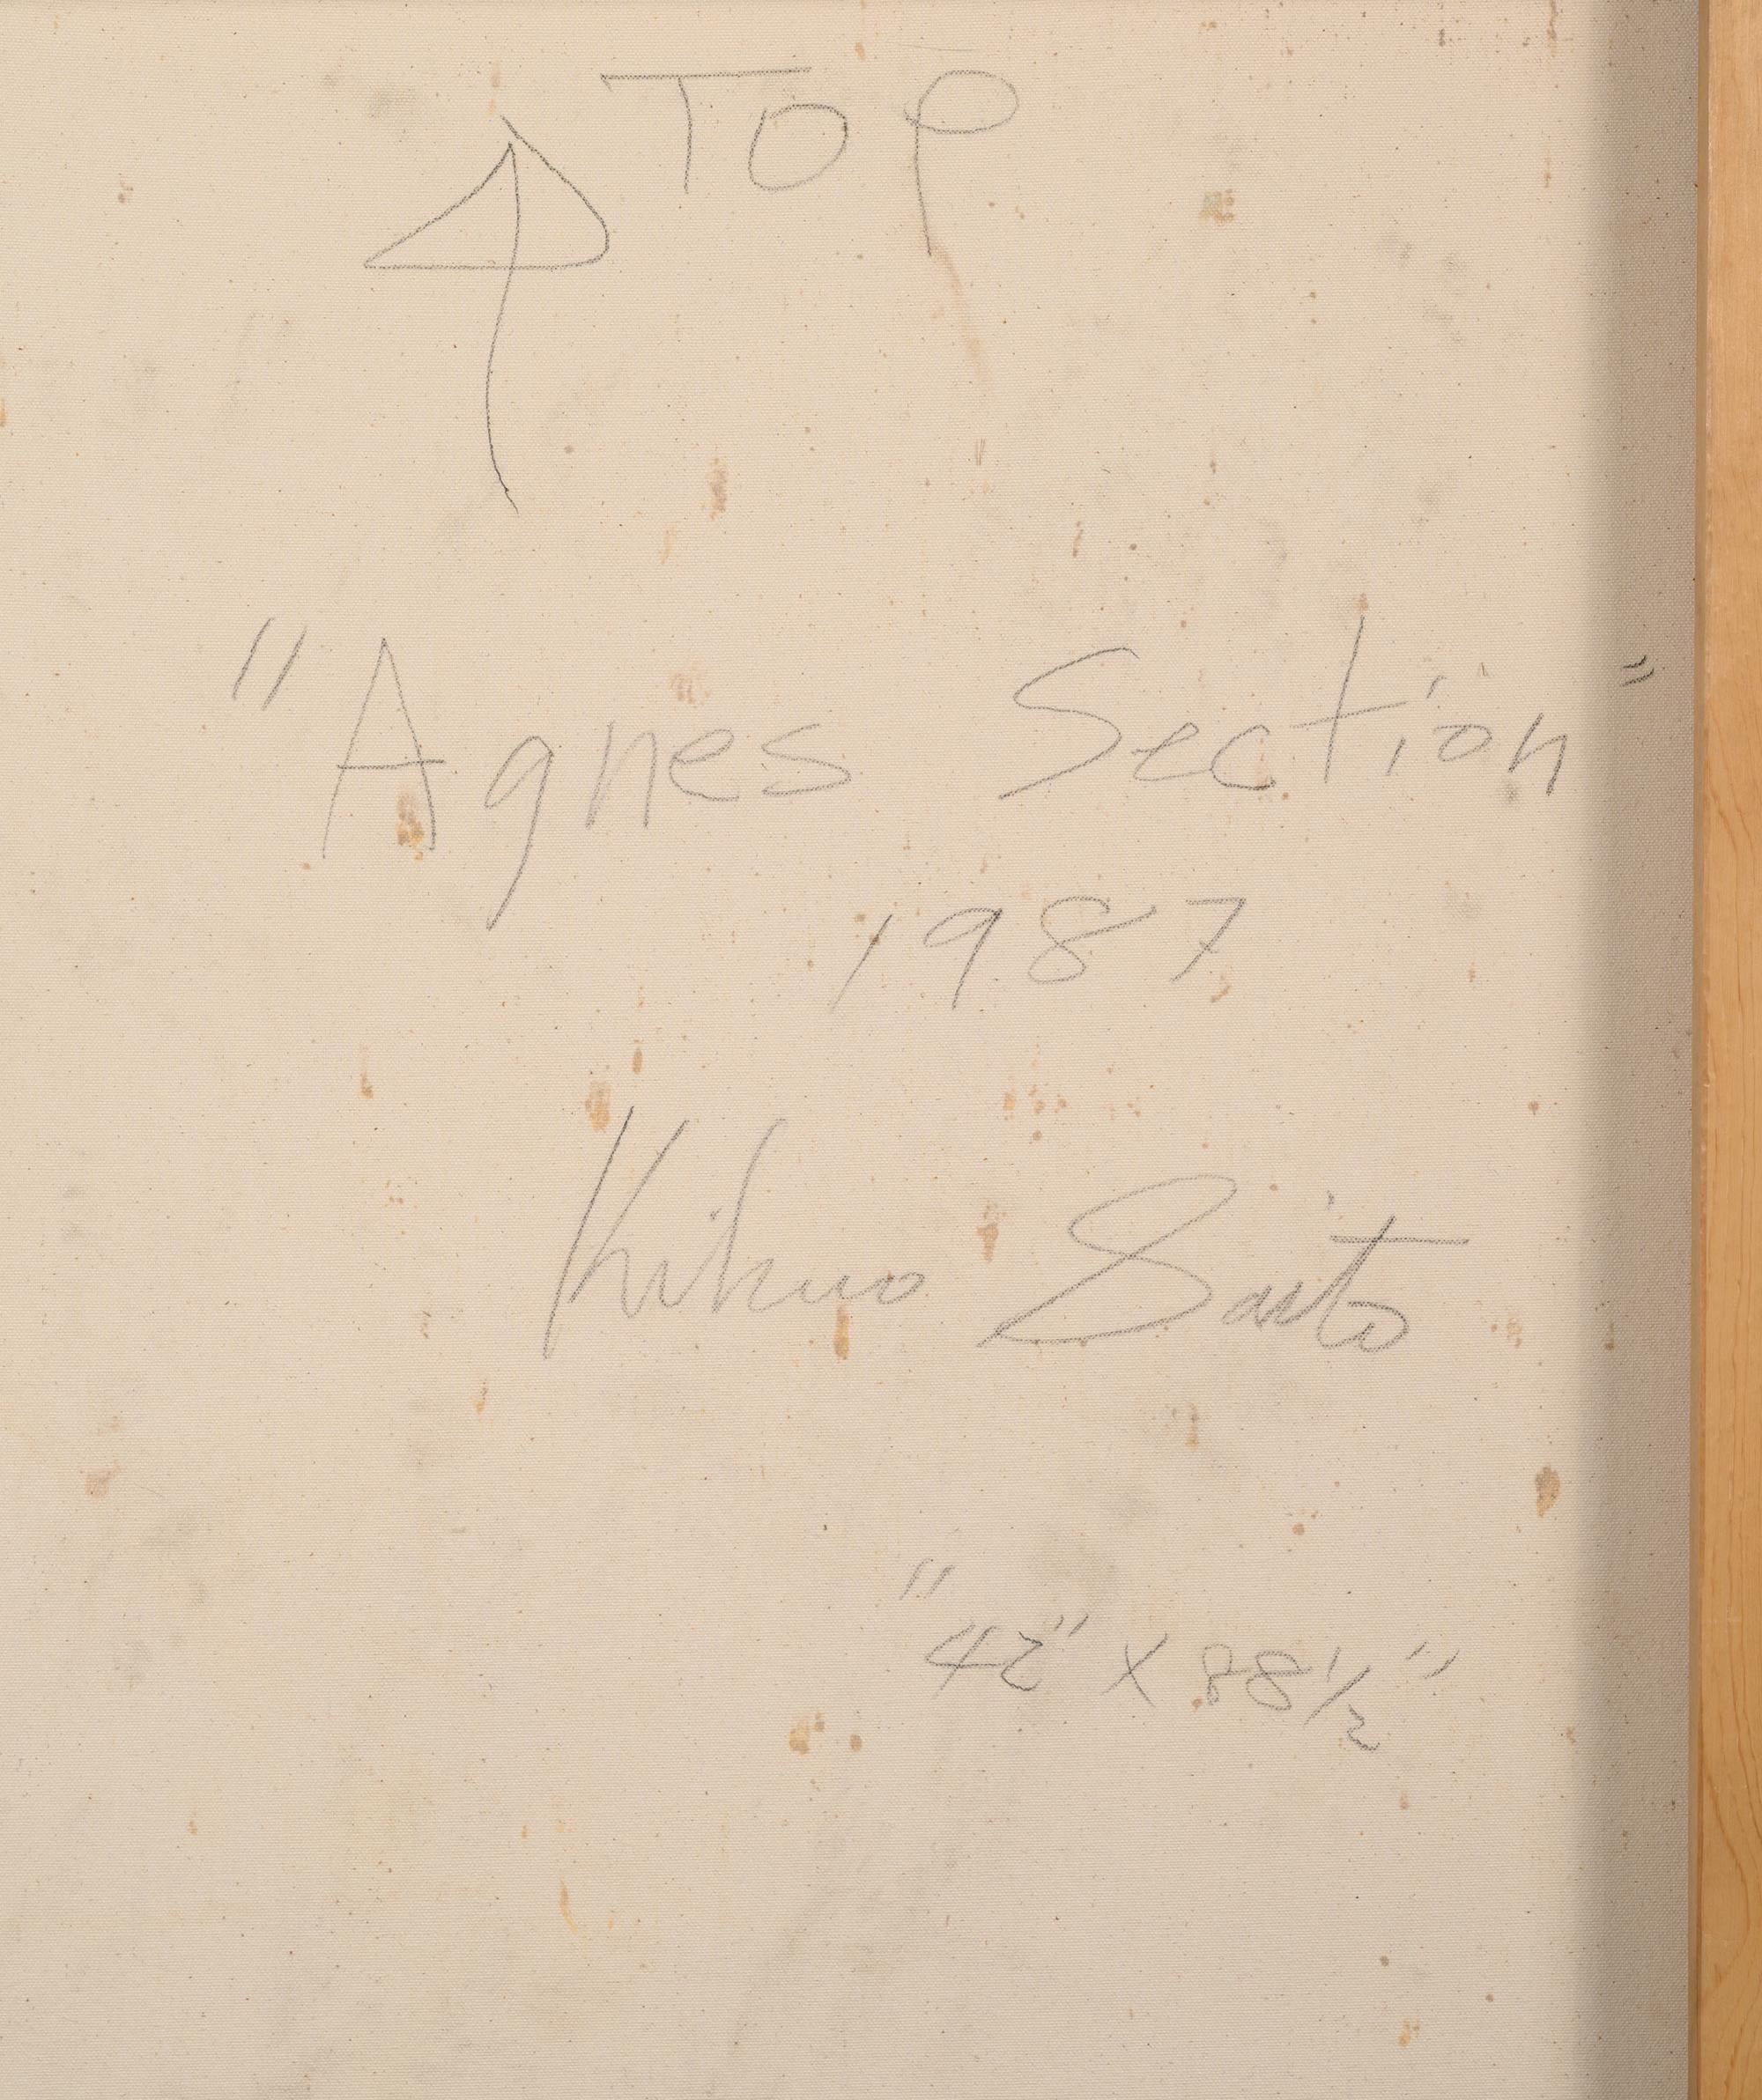 TOP
"Agnes Section"
1987
Kikuo Saito
"42" X 88 1/2"